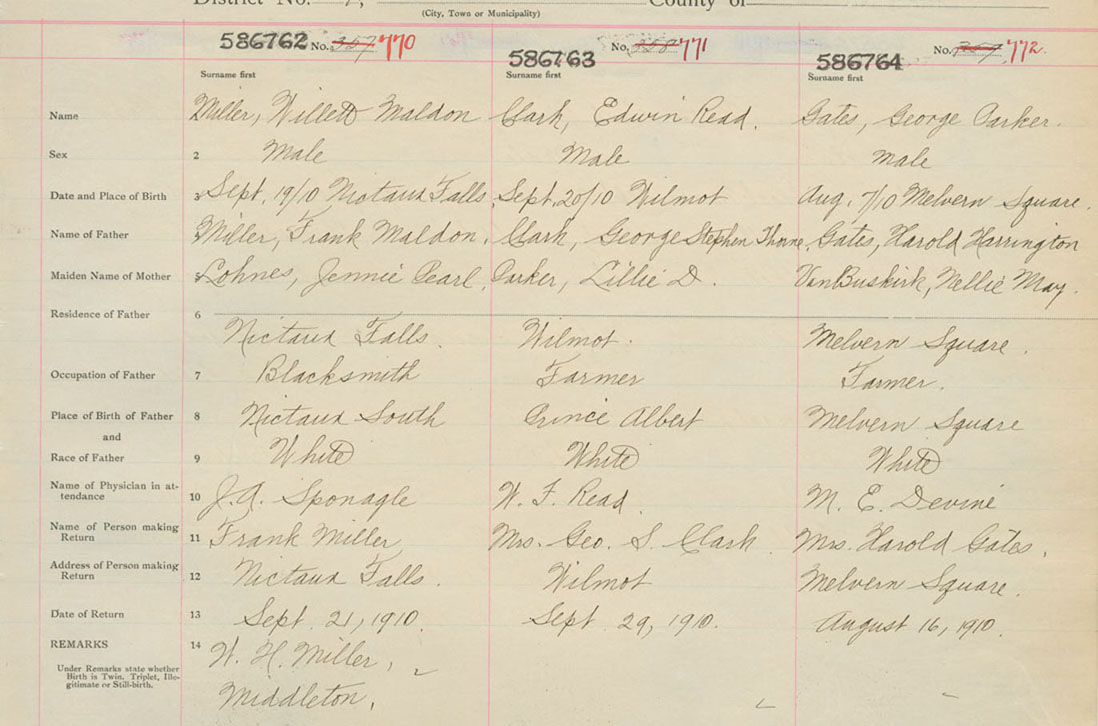 District No. 7, County of
(City, Town or Municipality)
586762 No. 357 770 586763 No. 358 771 586764 No. 772.
Surname first Surname first Surname first
Name Miller, Willett Maldon Clark, Edwin Read. Gates, George Parker.
Sex 2 Male Male Male
Date and Place of Birth 3 Sept. 19/10 Nictaux Falls, Sept. 20/10 Wilmot Aug. 7/10 Melvern Square.
Name of Father Miller, Frank Maldon. Clark, George Stephen Thorne, Gates, Harold Harrington
Maiden Name of Mother 5 Lohnes, Jennie Pearl, Parker, Lillie D. VanBuskirk, Nellie May.
Residence of Father 6
Nictaux Falls. Wilmot. Melvern Square.
Occupation of Father 7 Blacksmith Farmer Farmer.
Place of Birth of Father 8 Nictaux South Prince Albert Melvern Square
and
Race of Father 9 White White White
Name of Physician in at-
tendance 10 J.A. Sponagle W. F. Read. M. E. Devine
Name of Person making
Return 11 Frank Miller Mrs. Geo. S. Clark Mrs. Harold Gates.
Address of Person making
Return 12 Nictaux Falls. Wilmot Melvern Square.
Date of Return 13 Sept. 21, 1910. Sept 29, 1910. August 16, 1910.
REMARKS 14 W. H. Miller,
Under Remarks state whether
Birth is Twin. Triplet, Ille-
gitimate or Still-birth.
Middleton.